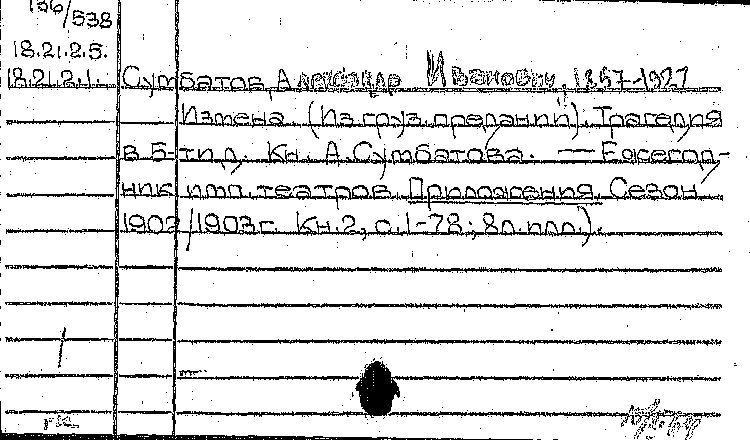 136/538
18.21.2.5.
18.21.2.1. Сумбатов, Александр Иванович, 1857-1927
Измена. (Из груз. преданий). Трагедия
в 5-ти д. Кн. А. Сумбатова. — Ежегод-
ник имп. театров. Приложения. Сезон
1902/1903г. Кн. 2, с. 1-78; 8л. илл.).